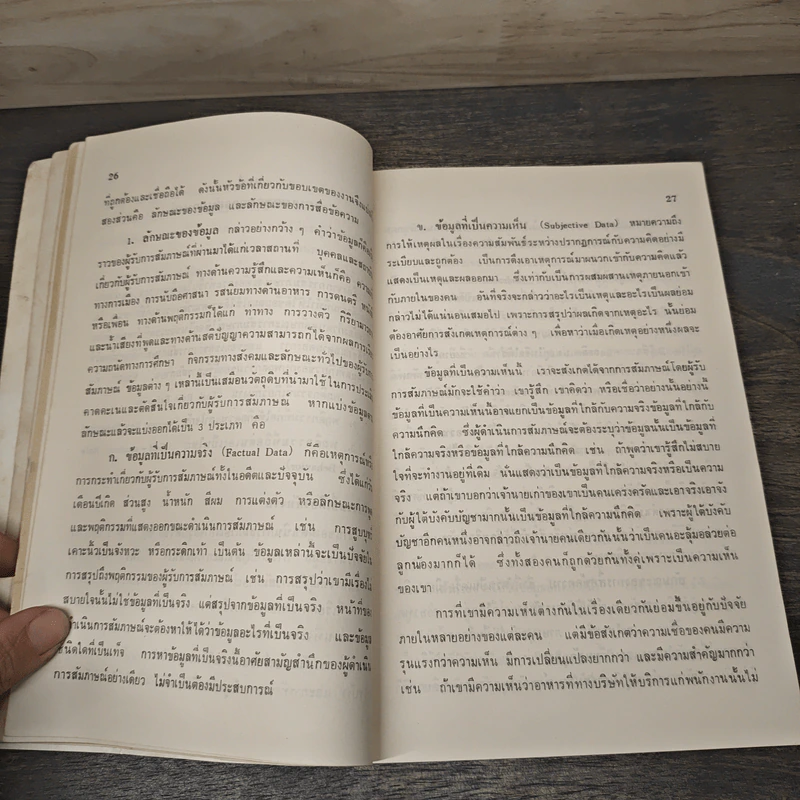 26
ที่ถูกต้องและเชื่อถือได้ ดังนั้นหัวข้อที่เกี่ยวกับขอบเขตของงานจึงแบ่ง
สองส่วนคือ ลักษณะของข้อมูล และลักษณะของการสื่อข้อความ
1. ลักษณะของข้อมูล กล่าวอย่างกว้าง ๆ คำว่าข้อมูลก็คือ
ราวของผู้รับการสัมภาษณ์ที่ผ่านมาได้แก่เวลาสถานที่ บุคคลและ
เกี่ยวกับผู้รับการสัมภาษณ์ ทางด้านความรู้สึกและความเห็นก็คือ
ทางการเมือง การนับถือศาสนา รสนิยมทางด้านอาหาร การดนตรี
หรือเพื่อน ทางด้านพฤติกรรมก็ได้แก่ ท่าทาง การวางตัว กิริยามารยาท
และน้ำเสียงที่พูดและทางด้านสติปัญญาความสามารถก็ได้จากผลการเรียน
ความถนัดทางการศึกษา กิจกรรมทางสังคมและลักษณะทั่วไปของผู้รับ
สัมภาษณ์ ข้อมูลต่าง ๆ เหล่านี้เป็นเสมือนวัตถุดิบที่นำมาใช้ในการประเมิน
คาดคะเนและตัดสินใจเกี่ยวกับผู้รับการสัมภาษณ์ หากแบ่งข้อมูลตาม
ลักษณะแล้วจะแบ่งออกได้เป็น 3 ประเภท คือ
ก. ข้อมูลที่เป็นความจริง (Factual Data) ก็คือเหตุการณ์หรือ
การกระทำเกี่ยวกับผู้รับการสัมภาษณ์ทั้งในอดีตและปัจจุบัน ซึ่งได้แก่วัน
เดือนปีเกิด ส่วนสูง น้ำหนัก สีผม การแต่งตัว หรือลักษณะการพูด
และพฤติกรรมที่แสดงออกขณะดำเนินการสัมภาษณ์ เช่น การสูบบุหรี่
เคาะนิ้วเป็นจังหวะ หรือกระดิกเท้า เป็นต้น ข้อมูลเหล่านี้จะเป็นปัจจัยใน
การสรุปถึงพฤติกรรมของผู้รับการสัมภาษณ์ เช่น การสรุปว่าเขามีเรื่องไม่
สบายใจนั้นไม่ใช่ข้อมูลที่เป็นจริง แต่สรุปจากข้อมูลที่เป็นจริง หน้าที่ของ
ดำเนินการสัมภาษณ์จะต้องหาให้ได้ว่าข้อมูลอะไรที่เป็นจริง และข้อมูล
ชนิดใดที่เป็นเท็จ การหาข้อมูลที่เป็นจริงนี้อาศัยสามัญสำนึกของผู้ดำเนิน
การสัมภาษณ์อย่างเดียว ไม่จำเป็นต้องมีประสบการณ์
27
ข. ข้อมูลที่เป็นความเห็น (Subjective Data) หมายความถึง
การให้เหตุผลในเรื่องความสัมพันธ์ระหว่างปรากฏการณ์กับความคิดอย่างมี
ระเบียบและถูกต้อง เป็นการดึงเอาเหตุการณ์มาผนวกเข้ากับความคิดแล้ว
แสดงเป็นเหตุและผลออกมา ซึ่งเท่ากับเป็นการผสมผสานเหตุภายนอกเข้า
กับภายในของคน อันที่จริงจะกล่าวว่าอะไรเป็นเหตุและอะไรเป็นผลย่อม
กล่าวไม่ได้แน่นอนเสมอไป เพราะการสรุปว่าผลเกิดจากเหตุอะไร นั้นยอม
ต้องอาศัยการสังเกตเหตุการณ์ต่าง ๆ เพื่อหาว่าเมื่อเกิดเหตุอย่างหนึ่งผลจะ
เป็นอย่างไร
ข้อมูลที่เป็นความเห็นนี้ เราจะสังเกตได้จากการสัมภาษณ์โดยผู้รับ
การสัมภาษณ์มักจะใช้คำว่า เขารู้สึก เขาคิดว่า หรือเชื่อว่าอย่างนั้นอย่างนี้
ข้อมูลที่เป็นความเห็นนี้อาจแยกเป็นข้อมูลที่ใกล้กับความจริงข้อมูลที่ใกล้กับ
ความนึกคิด ซึ่งผู้ดำเนินการสัมภาษณ์จะต้องระบุว่าข้อมูลนั้นเป็นข้อมูลที่
ใกล้ความจริงหรือข้อมูลที่ใกล้ความนึกคิด เช่น ถ้าพูดว่าเขารู้สึกไม่สบาย
ใจที่จะทำงานอยู่ที่เดิม นั่นแสดงว่าเป็นข้อมูลที่ใกล้ความจริงหรือเป็นความ
จริง แต่ถ้าเขาบอกว่าเจ้านายเก่าของเขาเป็นคนเคร่งครัดและเอาจริงเอาจัง
กับผู้ใต้บังคับบัญชามากนั้นเป็นข้อมูลที่ใกล้ความนึกคิด เพราะผู้ใต้บังคับ
บัญชาอีกคนหนึ่งอาจกล่าวถึงเจ้านายคนเดียวกันนั้นว่าเป็นคนอะลุ้มอล่วยต่อ
ลูกน้องมากก็ได้ ซึ่งทั้งสองคนก็ถูกด้วยกันทั้งคู่เพราะเป็นความเห็น
ของเขา
การที่เขามีความเห็นต่างกันในเรื่องเดียวกันย่อมขึ้นอยู่กับปัจจัย
ภายในหลายอย่างของแต่ละคน แต่มีข้อสังเกตว่าความเชื่อของคนมีความ
รุนแรงกว่าความเห็น มีการเปลี่ยนแปลงยากกว่า และมีความสำคัญมากกว่า
เช่น ถ้าเขามีความเห็นว่าอาหารที่ทางบริษัทให้บริการแก่พนักงานนั้นไม่